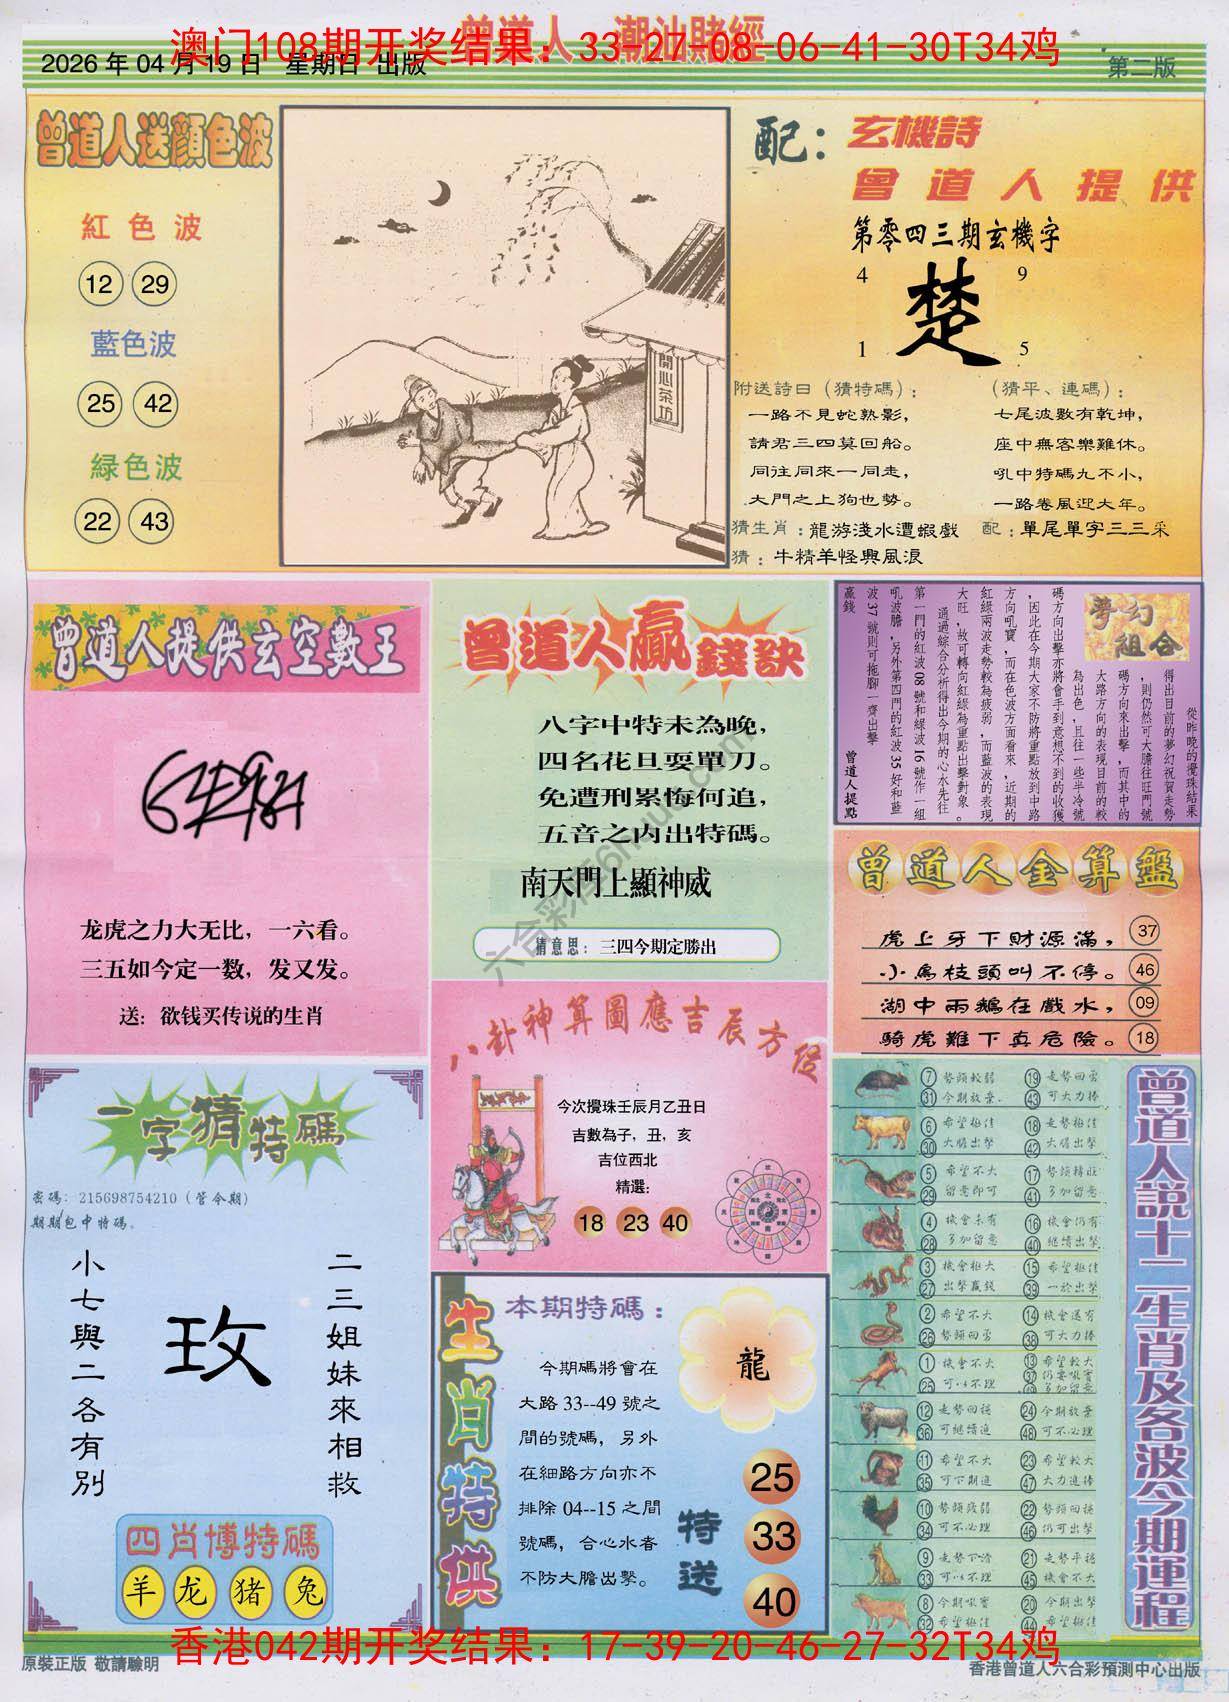 曾道人．潮汕賭經
澳门108期开奖结果：33-27-08-06-41-30T34鸡
2026 年 04 月 19 日 星期日 出版
第二版
曾道人送顏色波
紅色波
12 29
藍色波
25 42
緑色波
22 43
開心茶坊
配：玄機詩
曾道人提供
第零四三期玄機字
4 9
楚
1 5
附送詩曰（猜特碼）：
一路不見蛇熟影，
請君三四莫回船。
同往同來一同走，
大門之上狗也勢。
（猜平、連碼）：
七尾波數有乾坤，
座中無客樂難休。
吼中特碼九不小，
一路卷風迎大年。
猜生肖：龍游淺水遭蝦戲
配：單尾單字三三采
猜：牛精羊怪興風浪
曾道人提供玄空數王
龙虎之力大无比，一六看。
三五如今定一数，发又发。
送：欲钱买传说的生肖
曾道人贏錢訣
八字中特未為晚，
四名花旦耍單刀。
免遭刑累悔何追，
五音之内出特碼。
南天門上顯神威
猜意思：三四今期定勝出
夢幻組合
從昨晚的攪珠結果
得出目前的夢幻祝賀走勢
，則仍然可大膽往旺門號
碼方向來出擊，而其中的
大路方向的表現目前的較
為出色，且往一些半冷號
碼方向出擊亦將會手到意想不到的收獲
，因此在今期大家不防將重點放到中路
方向吼寶，而在色波方面看來，近期的
紅綠兩波走勢較為疲弱，而藍波的表現
大旺，故可轉向紅綠為重點出擊對象。
通過綜合分析得出今期的心水先往
第一門的紅波 08 號和緑波 16 號作一組
吼波膽，另外第四門的紅波 35 好和藍
波 37 號則可拖腳一齊出擊
贏錢
曾道人提點
曾道人金算盤
虎上牙下財源滿， 37
小鳥枝頭叫不停。 46
湖中兩鵝在戲水， 09
騎虎難下真危險。 18
一字猜特碼
密碼：215698754210（管令期）
期期包中特碼。
小七與二各有別
玫
二三姐妹來相救
四肖博特碼
羊 龙 猪 兔
八卦神算圖應吉辰方位
今次攪珠壬辰月乙丑日
吉數為子，丑，亥
吉位西北
精選：
18 23 40
生肖特供
本期特碼：
龍
今期碼將會在
大路 33--49 號之
間的號碼，另外
在細路方向亦不
排除 04--15 之間
號碼，合心水者
不防大膽出擊。
特送
25
33
40
曾道人説十二生肖及各波今期運程
7 勢頭較弱 19 走勢回雲
31 今期放棄 43 可大力捧
6 希望極佳 18 走勢極佳
30 大膽出擊 42 大膽出擊
5 希望不大 17 勢頭轉旺
29 留意即可 41 多加留意
4 機會未有 16 機會仍有
28 多加留意 40 繼續出擊
3 機會極大 15 希望極佳
27 出擊贏錢 39 一於出擊
2 希望不大 14 機會還有
26 勢頭回雲 38 可大力捧
1 機會不大 13 希望較大
25 可以不理 37 仍要吼實
49 多加留意
12 走勢回穩 24 今期放棄
36 可繼續追 48 可不必理
11 希望不大 23 希望較大
35 可下期追 47 大力追捧
10 勢頭疲弱 22 勢頭回穩
34 可不必理 46 仍可出擊
9 走勢下滑 21 走勢平穩
33 可以不理 45 機會不大
8 今期吼實 20 今期出擊
32 希望極佳 44 希望極佳
香港042期开奖结果：17-39-20-46-27-32T34鸡
原裝正版 敬請驗明
香港曾道人六合彩預測中心出版